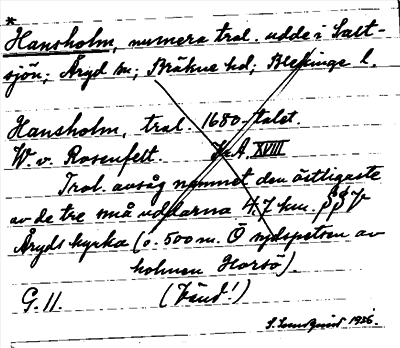 *
Hansholm, numera trol. udde i Salt-
sjön; Åryd sn; Bräkne hd; Blekinge l.
Hansholm, trol. 1680-talet.
W. v. Rosenfelt. Kr.A. XVIII
Trol. avsåg namnet den östligaste
av de tre små uddarna 4,7 km. SSV
Åryds kyrka (o. 500 m. Ö sydspetsen av
holmen Horsö).
G. 11. (Vänd!)
S. 1936.